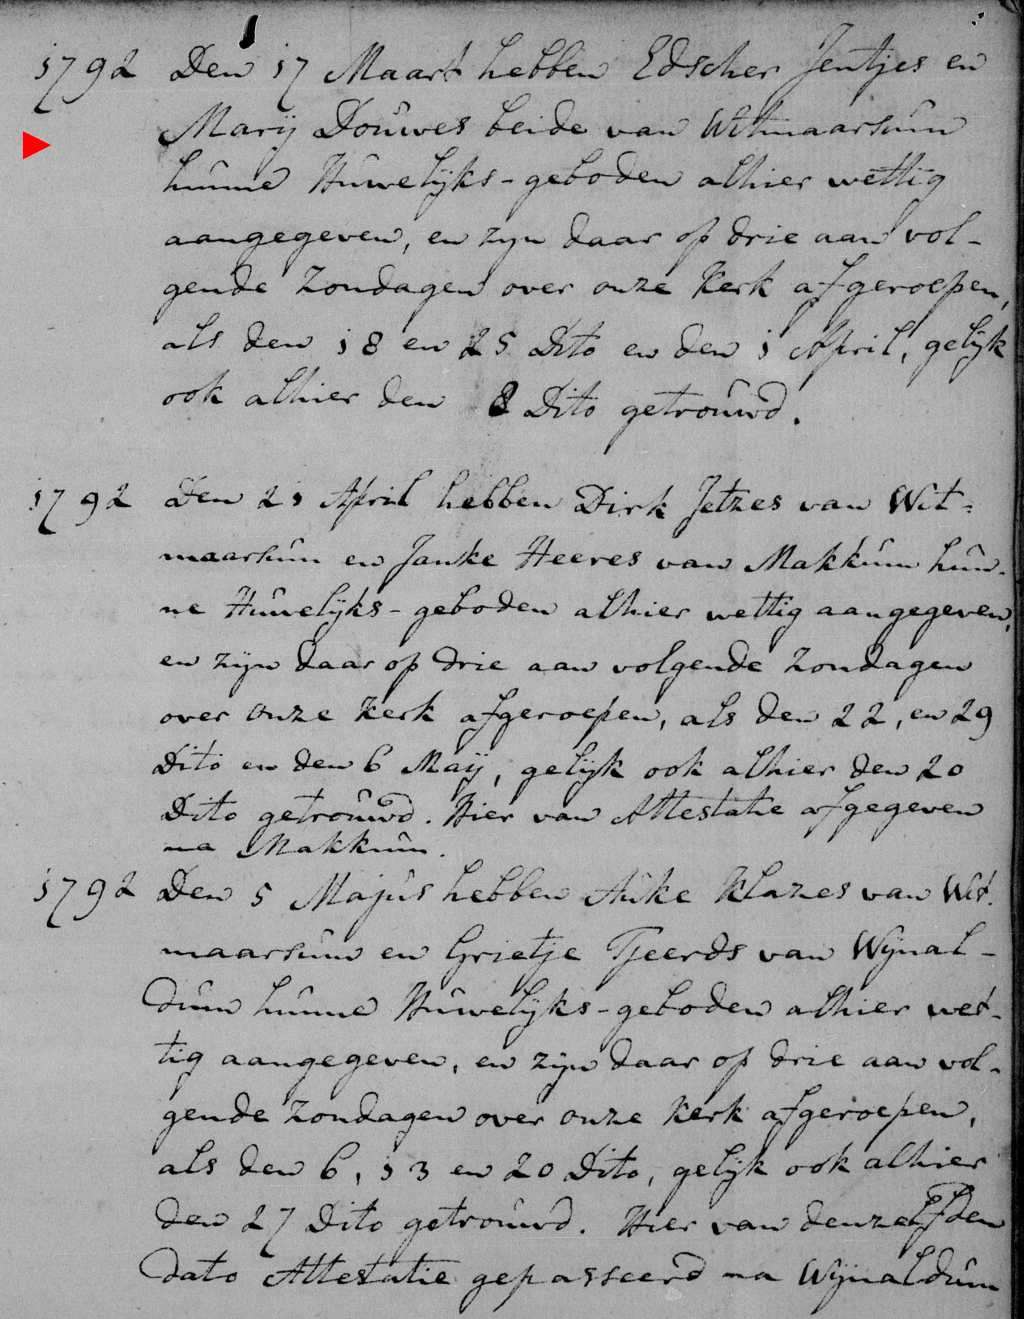 1792 Den 17 Maart hebben Edscher Jentjes en
Marij Douwes beide van Witmaarsum
hunne Huwelijks-geboden alhier wettig
aangegeven, en zyn daar op drie aan vol-
gende Zondagen over onze Kerk afgeroepen,
als den 18 en 25 Dito en den 1 April, gelijk
ook alhier den 8 Dito getrouwd.
1792 Den 21 April hebben Dirk Jetzes van Wit-
maarsum en Janke Heeres van Makkum hun-
ne Huwelijks-geboden alhier wettig aangegeven,
en zijn daar op drie aan volgende Zondagen
over onze Kerk afgeroepen, als den 22, en 29
Dito en den 6 Maij, gelijk ook alhier den 20
Dito getrouwd. Hier van Attestatie afgegeven
na Makkum.
1792 Den 5 Majus hebben Auke Klazes van Wit-
maarsum en Grietje Tjeerds van Wijnal-
dum hunne Huwelijks-geboden alhier wet-
tig aangegeven, en zijn daar op drie aan vol-
gende Zondagen over onze Kerk afgeroepen,
als den 6, 13 en 20 Dito, gelijk ook alhier
den 27 Dito getrouwd. Hier van denzelfden
dato Attestatie gepasseerd na Wijnaldum